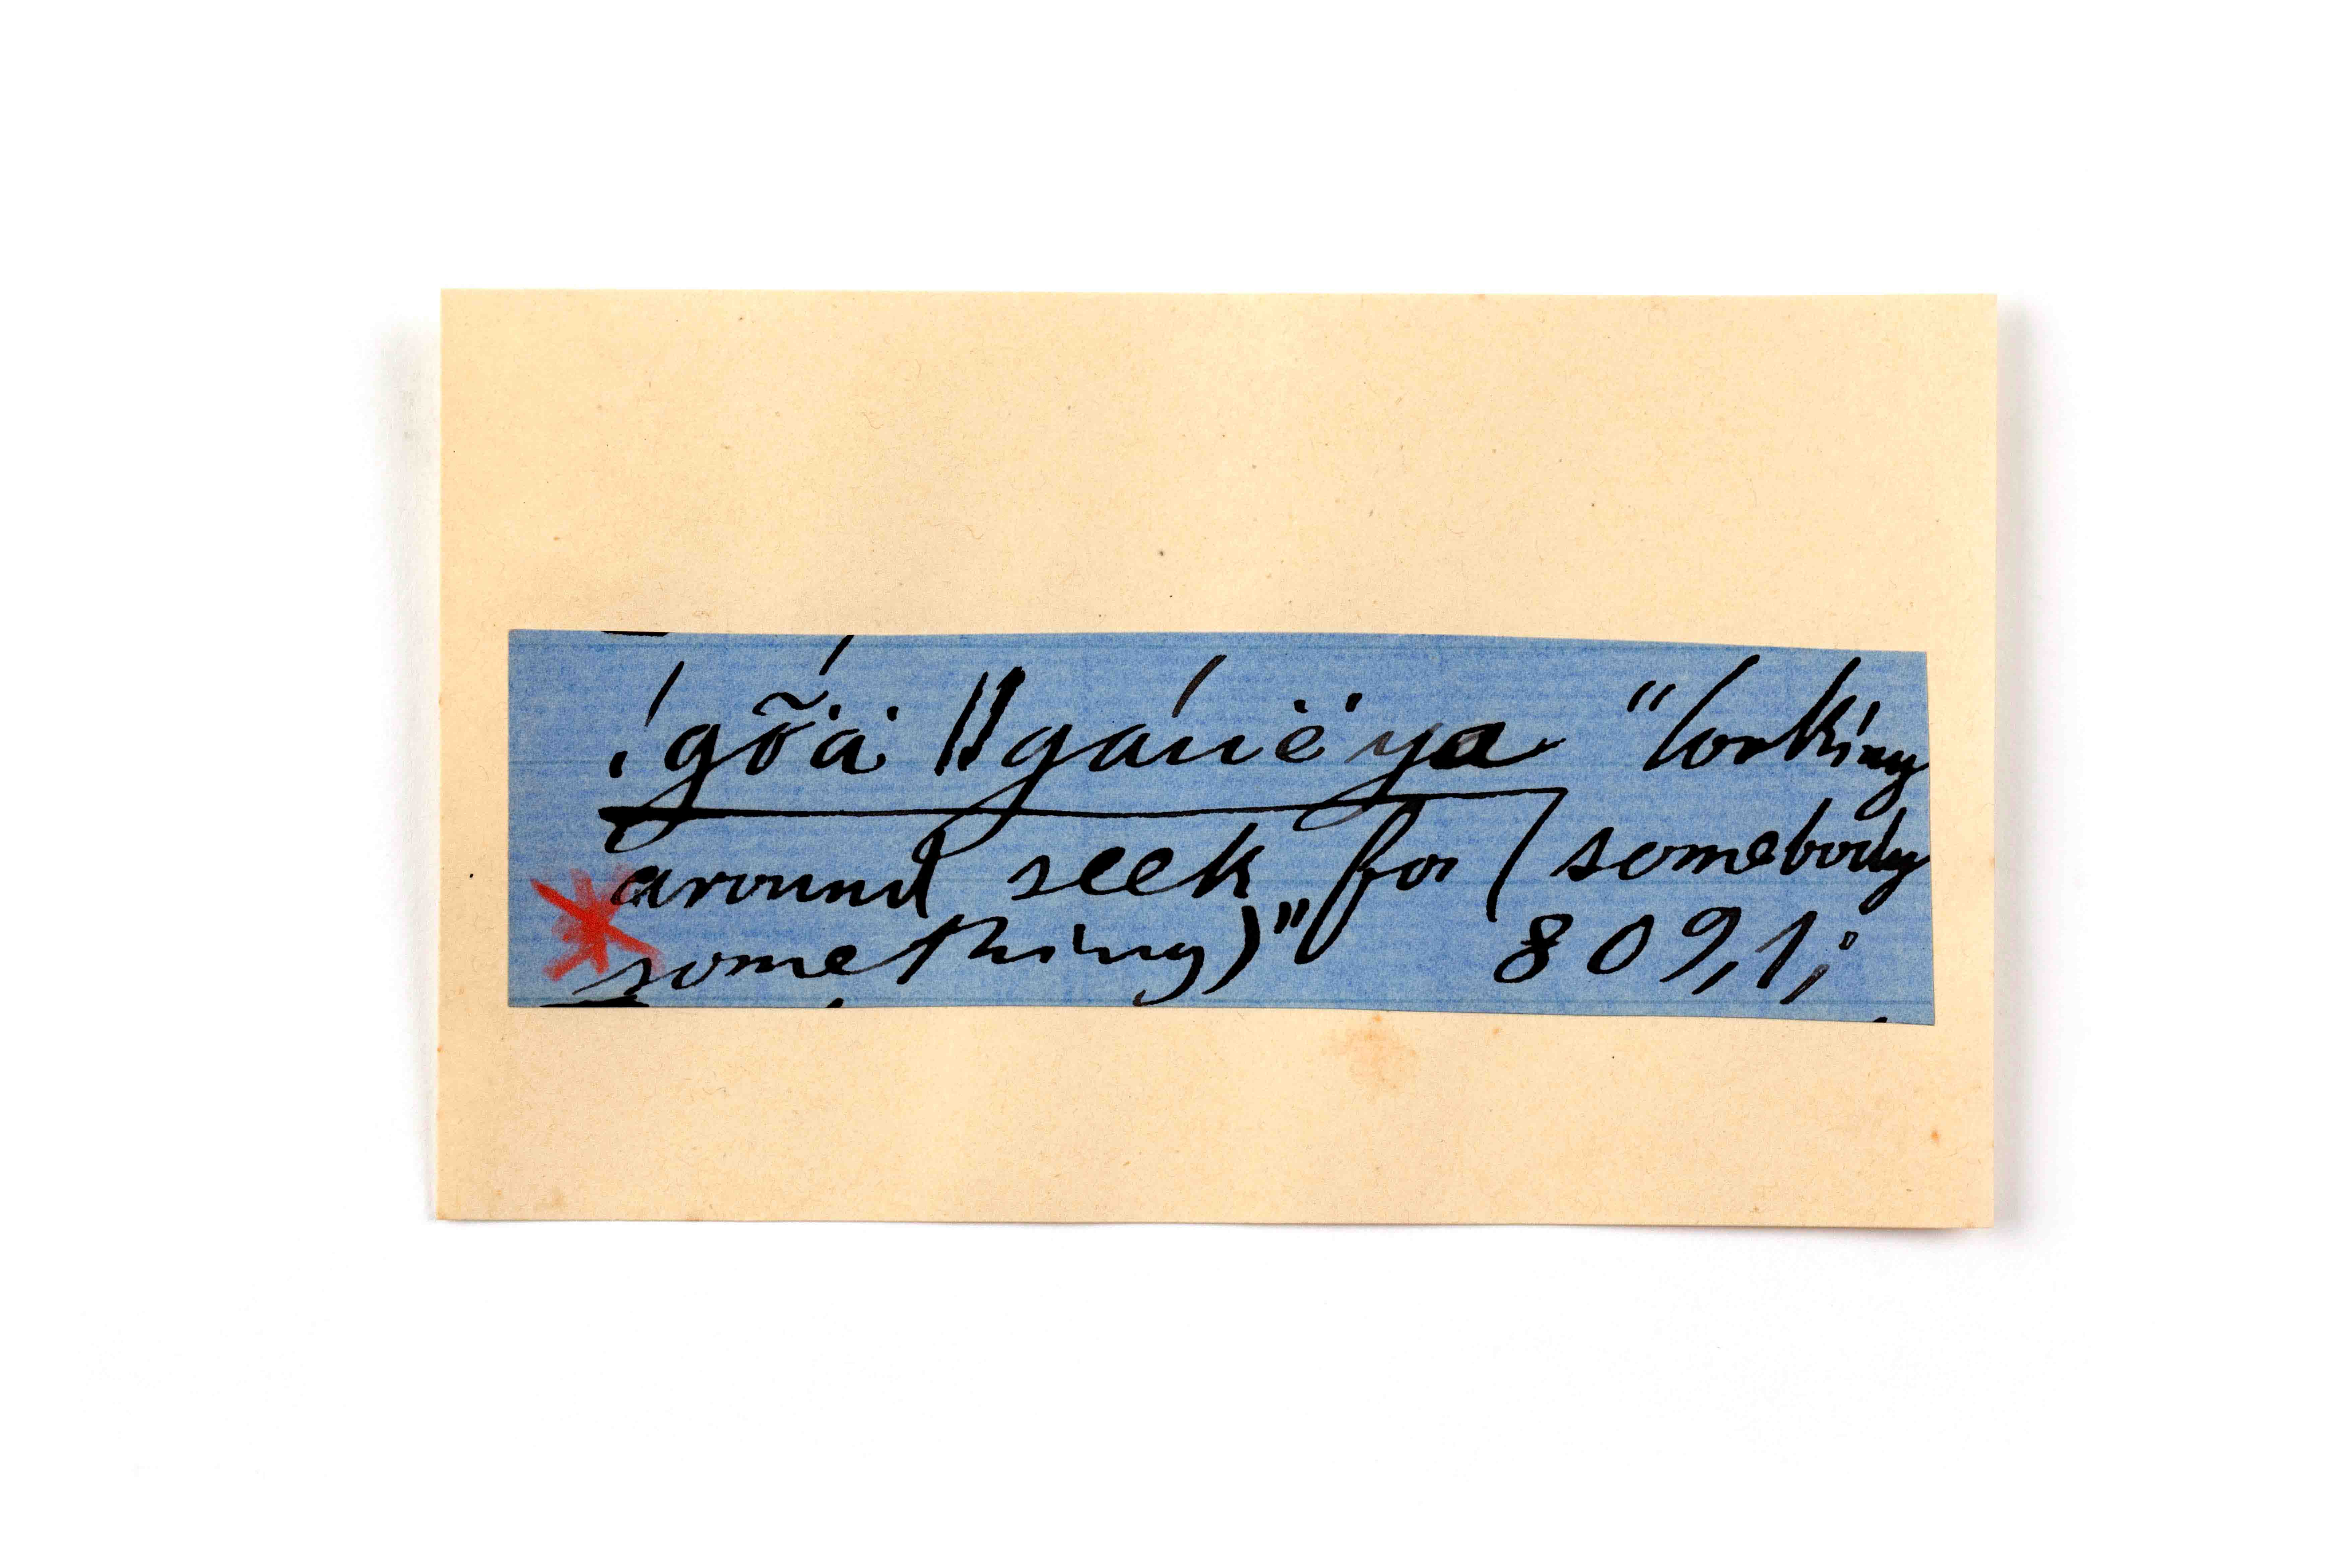 !gõä ǁgáuëya "looking
around seek for (somebody
something)" 809,1;